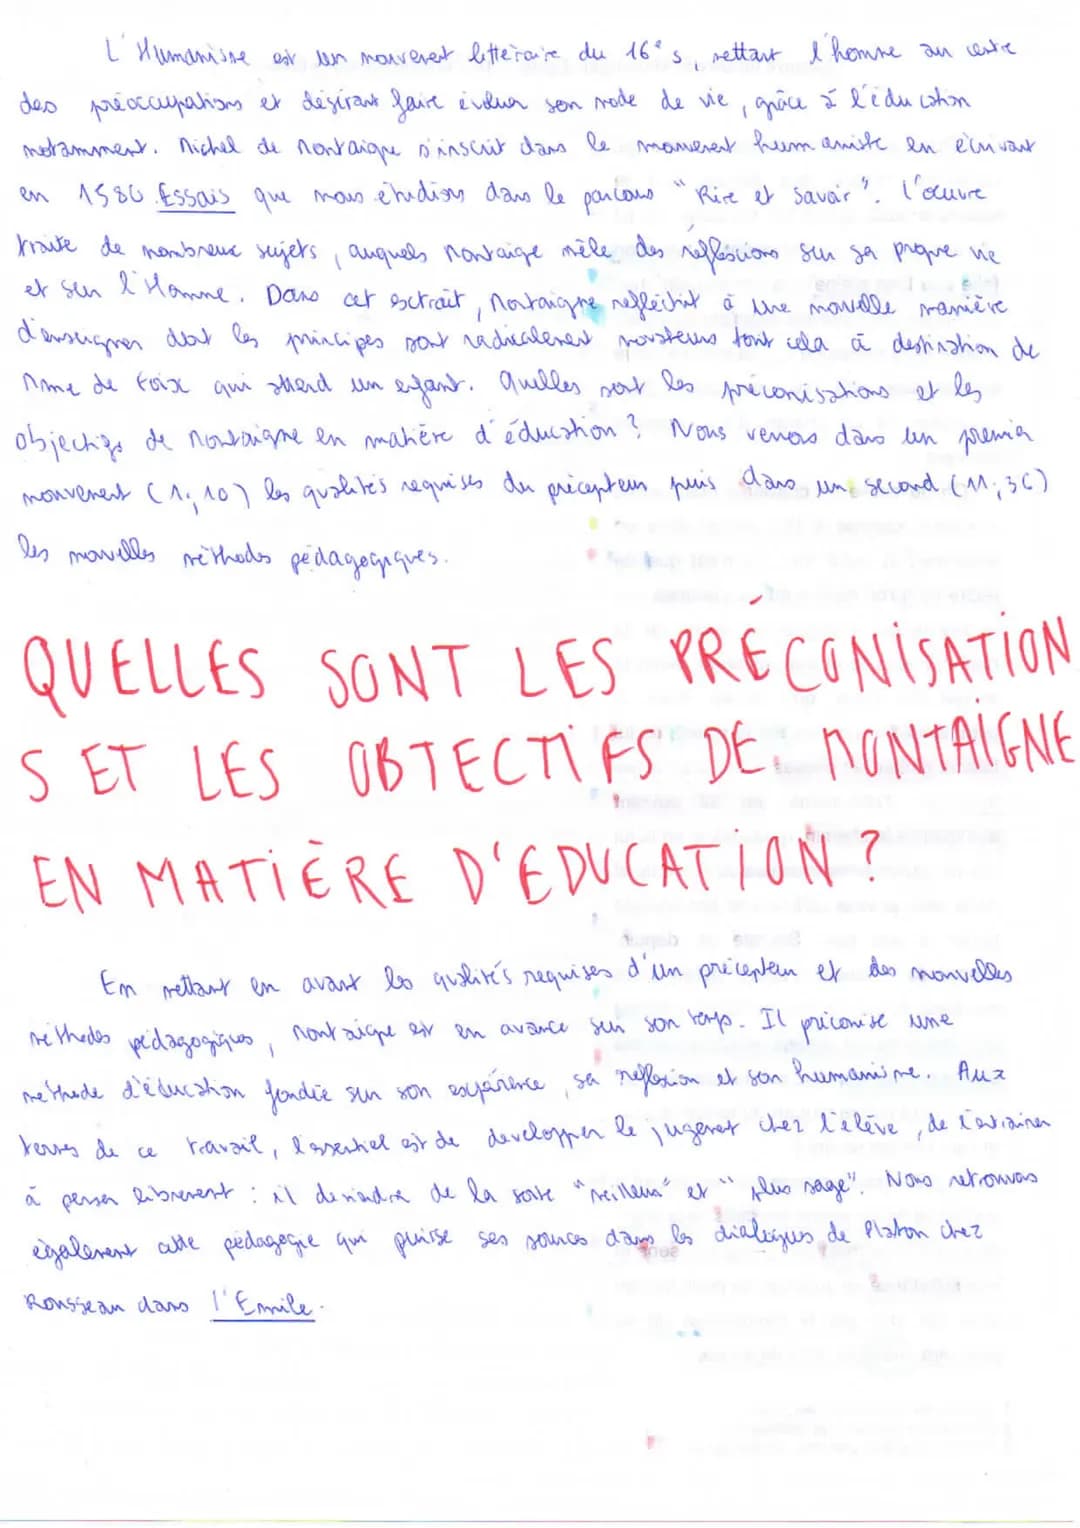 L'Humanisme est un mouvement littéraire du 16° s, mettant l'homme au centre
des préoccupations et désirant faire évoluer son mode de vie, grâce à l'éducation
notamment. Michel de Montaigne s'inscrit dans le mouvement humaniste en écrivant
en 1580 Essais que nous étudions dans le parcours "Rire et Savoir". L'oeuvre
traite de nombreux sujets, auquels Montaigne mêle des réflexions sur sa propre vie
et sur l'Homme. Dans cet extrait, Montaigne réfléchit à une nouvelle manière
d'enseigner dont les principes sont radicalement novateurs tout cela à destination de
Mme de Foix qui attend un enfant. Quelles sont les préconisations et les
objectifs de Montaigne en matière d'éducation ? Nous verrons dans un premier
mouvement (1;10) les qualités requises du précepteur puis dans un second (11;36)
les nouvelles méthodes pédagogiques.
QUELLES SONT LES PRÉCONISATION
S ET LES OBJECTIFS DE MONTAIGNE
EN MATIÈRE D'EDUCATION ?
En mettant en avant les qualités requises d'un précepteur et des nouvelles
méthodes pédagogiques, Montaigne est en avance sur son temps. Il préconise une
méthode d'éducation fondée sur son expérience, sa réflexion et son humanisme. Aux
termes de ce travail, l'essentiel est de developper le jugement chez l'élève, de l'entrainer
à penser librement : il deviendra de la sorte "meilleur" et "plus sage". Nous retrouvons
également cette pédagogie qui puise ses sources dans les dialogues de Platon chez
Rousseau dans l'Emile.